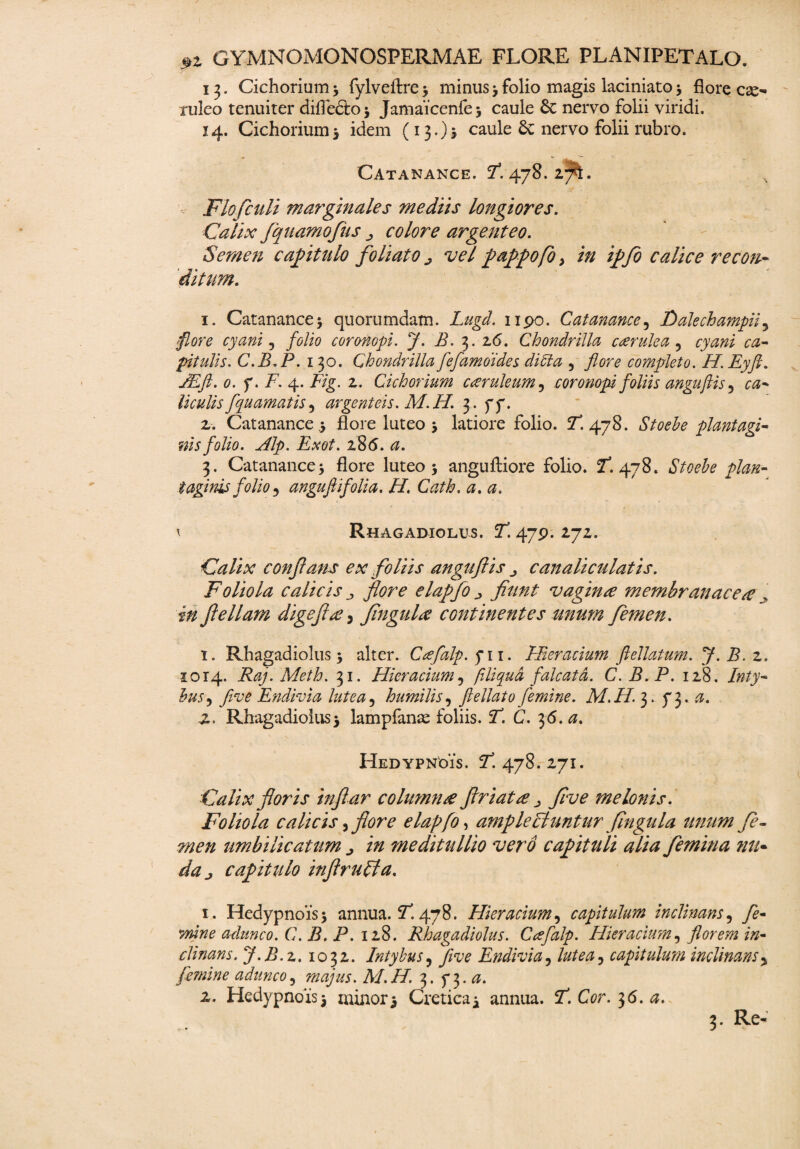 92 GYMNOMONOSPERMAE FLORE PLANIPETALO.
13. Cichorium; ſylveſtre; minus; folio magis laciniato; flore cæ-
ruleo tenuiter diſſecto; Jamaïcenſe; caule & nervo folii viridi.
14. Cichorium; idem (13.); caule & nervo folii rubro.
CATANANCE. T. 478. 271.
Floſculi marginales mediis longiores.
Calix ſquamoſus, colore argenteo.
Semen capitulo foliato, vel pappoſo, in ipſo calice recon-
ditum.
1. Catanance; quorumdam. Lugd. 1190. Catanance, Dalechampii,
flore cyani, folio coronopi. J. B. 3. 26. Chondrilla cærulea, cyani ca-
pitulis. C. B. P. 130. Chondrilla ſeſamoïdes dicta, flore completo. H. Eyſt.
Æſt. o. 5. F. 4. Fig. 2. Cichorium cæruleum, coronopi foliis anguſtis, ca-
liculis ſquamatis, argenteis. M. H. 3. 55.
2. Catanance; flore luteo; latiore folio. T. 478. Stoebe plantagi-
nis folio. Alp. Exot. 286. a.
3. Catanance; flore luteo; anguſtiore folio. T. 478. Stoebe plan-
taginis folio, anguſtifolia. H. Cath. a. a.
RHAGADIOLUS. T. 479. 272.
Calix conſtans ex foliis anguſtis, canaliculatis.
Foliola calicis, flore elapſo, fiunt vaginæ membranaceæ,
in ſtellam digeſtæ, ſingulæ continentes unum ſemen.
1. Rhagadiolus; alter. Cæſalp. 511. Hieracium ſtellatum. J. B. 2.
1014. Raj. Meth. 31. Hieracium, ſiliquâ falcatâ. C. B. P. 128. Inty-
bus, ſive Endivia lutea, humilis, ſtellato ſemine. M. H. 3. 53. a.
2. Rhagadiolus; lampſanæ foliis. T. C. 36. a.
HEDYPNOÏS. T. 478. 271.
Calix floris inſtar columnæ ſtriatæ, ſive melonis.
Foliola calicis, flore elapſo, amplectuntur ſingula unum ſe-
men umbilicatum, in meditullio verò capituli alia ſemina nu-
da, capitulo inſtructa.
1. Hedypnoïs; annua. T. 478. Hieracium, capitulum inclinans, ſe-
mine adunco. C. B. P. 128. Rhagadiolus. Cæſalp. Hieracium, florem in-
clinans. J. B. 2. 1032. Intybus, ſive Endivia, lutea, capitulum inclinans,
ſemine adunco, majus. M. H. 3. 53. a.
2. Hedypnoïs; minor; Cretica; annua. T. Cor. 36. a.
3. Re-